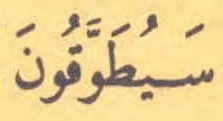 سَيُطَوَّقُونَ